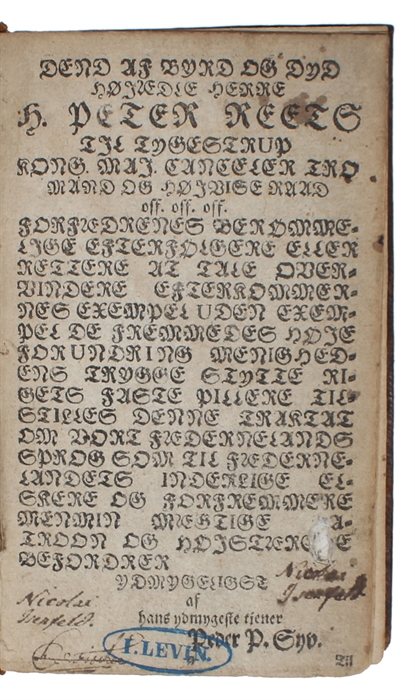 DEND AF BYRD OG DYD
HØJÆDLE HERRE
H. PETER REETS
TIL TYGESTRUP
KONG. MAJ. CANCELER TRO
MAND OG HØJVISE RAAD
off. off. off.
FORFÆDRENES BERØMME-
LIGE EFTERFØLGERE ELLER
RETTERE AT TALE OVER-
VINDERE EFTERKOMMER-
NES EXEMPEL UDEN EXEM-
PEL DE FREMMEDES HØJE
FORUNDRING MENIGHED-
ENS TRYGGE STYTTE RI-
GETS FASTE PILLERE TIL-
STILLES DENNE TRAKTAT
OM VORT FÆDERNELANDS
SPROG SOM TIL FÆDERNE-
LANDETS INDERLIGE EL-
SKERE OG FORFREMMERE
MENMIN MEGTIGE A-
TROON OG HØJSTÆR E
BEFORDRER
YDMYGELIGST
af
hans ydmygeste tiener
Peder P. Syv.
Til
Nicolai
Isenfeldt.
Nicolai
Isenfeldt.
F. LEVIN.